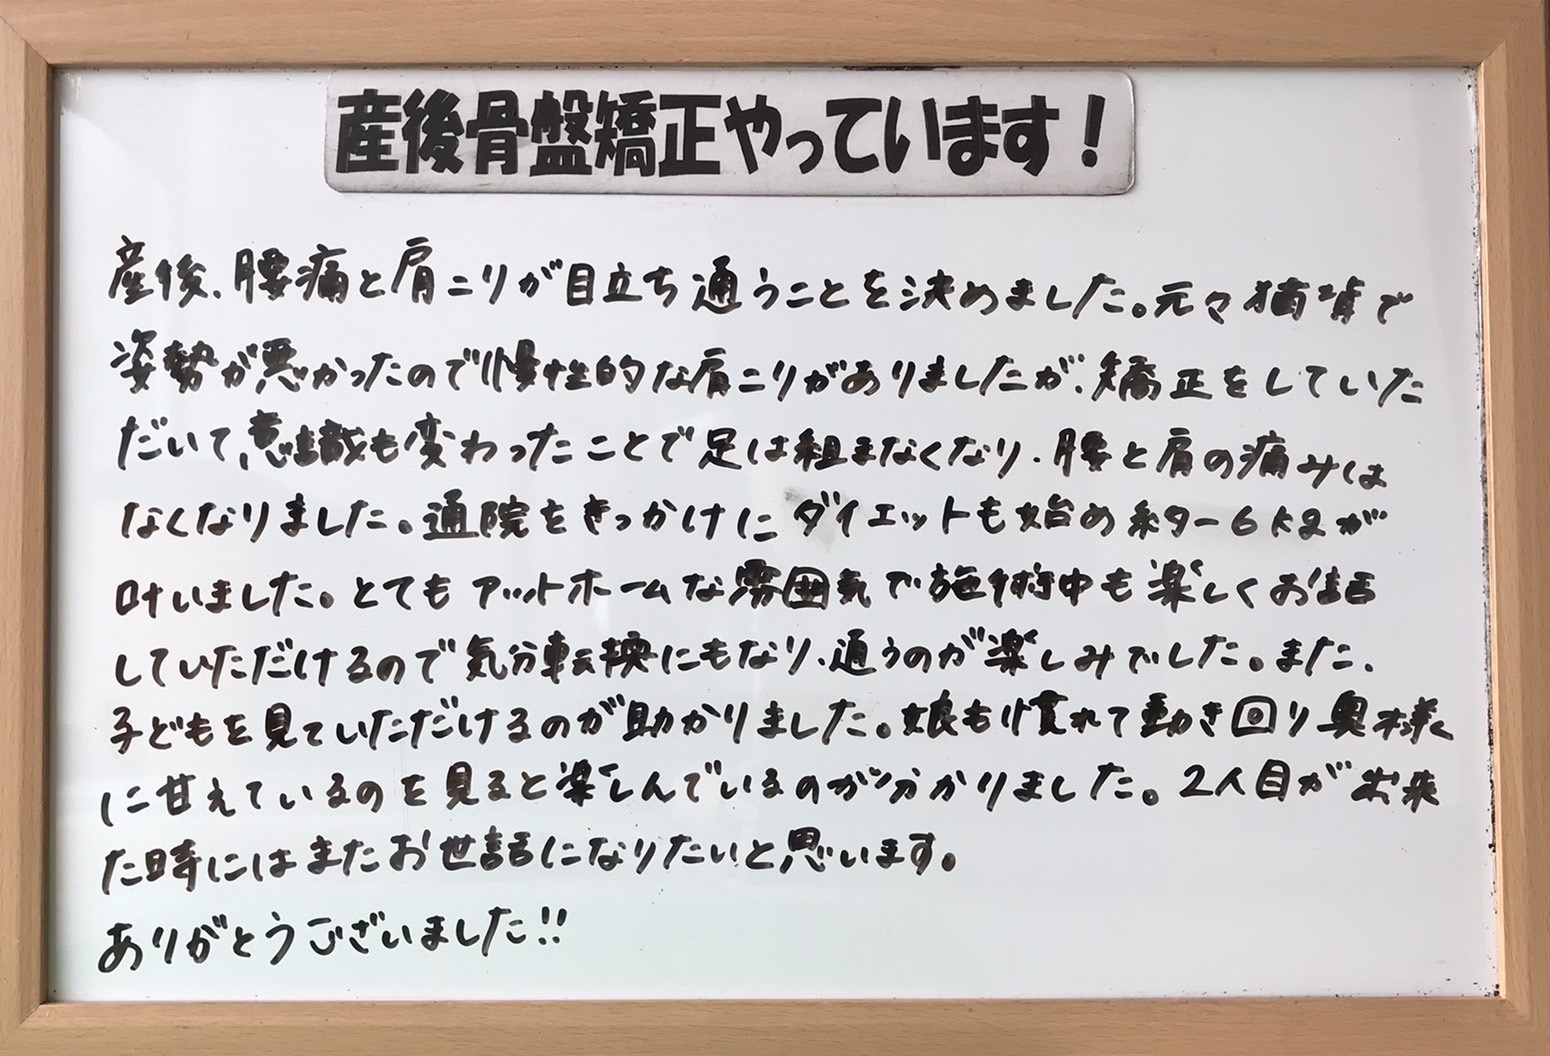 産後骨盤矯正やっています!
産後、腰痛と肩こりが目立ち通うことを決めました。元々猫背で
姿勢が悪かったので慢性的な肩こりがありましたが、矯正をしていた
だいて、意識も変わったことで足は組まなくなり、腰と肩の痛みは
なくなりました。通院をきっかけにダイエットも始め約-6kgが
叶いました。とてもアットホームな雰囲気で施術中も楽しくお話
していただけるので気分転換にもなり、通うのが楽しみでした。また、
子どもを見ていただけるのが助かりました。娘も慣れて動き回り奥様
に甘えているのを見ると楽しんでいるのが分かりました。2人目が出来
た時にはまたお世話になりたいと思います。
ありがとうございました!!